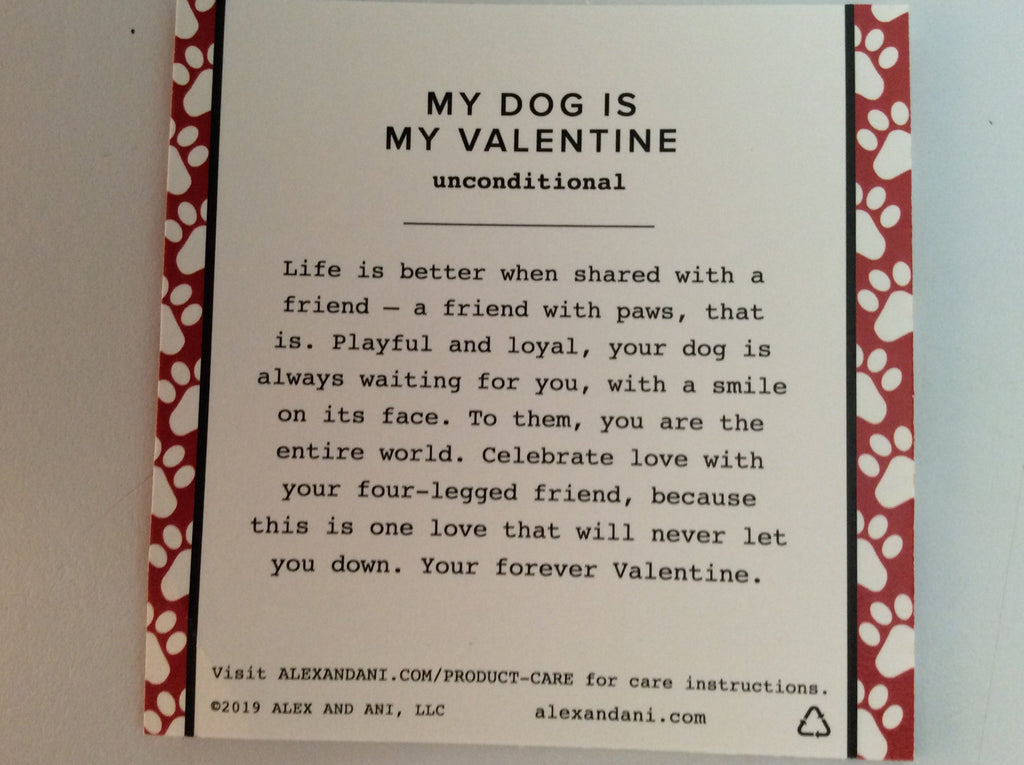 MY DOG IS
MY VALENTINE
unconditional
Life is better when shared with a
friend — a friend with paws, that
is. Playful and loyal, your dog is
always waiting for you, with a smile
on its face. To them, you are the
entire world. Celebrate love with
your four-legged friend, because
this is one love that will never let
you down. Your forever Valentine.
Visit ALEXANDANI.COM/PRODUCT-CARE for care instructions.
©2019 ALEX AND ANI, LLC alexandani.com